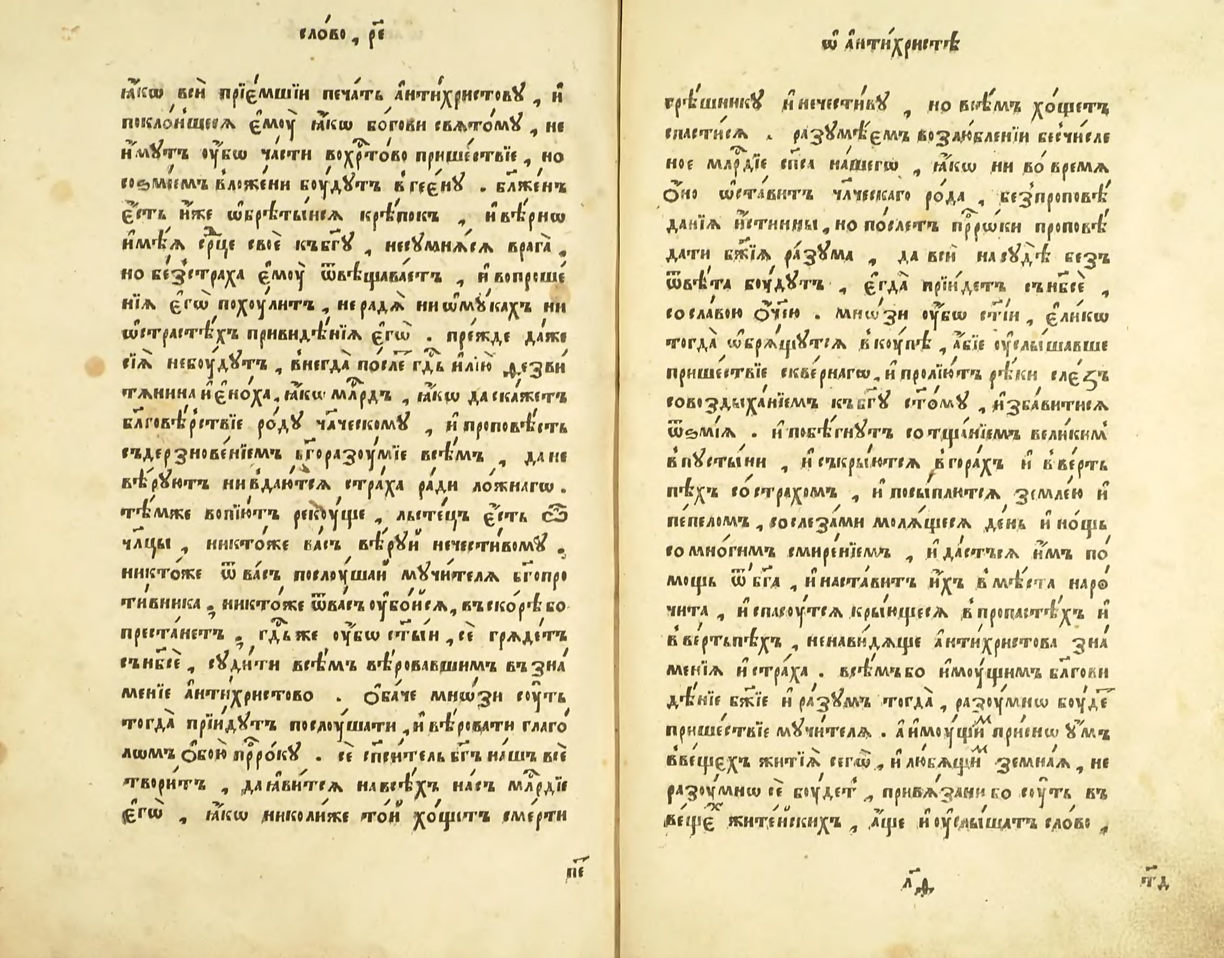 сло́во , р҃е
ꙗ҆́кѡ всѝ прїє́мшїи печа́ть а҆нти́христовꙋ , и҆
поклонщеесѧ є҆моꙋ̀ ꙗ҆́кѡ бо́гови свѧто́мꙋ , не
и҆́мꙋтъ оу҆́бѡ ча́сти вохр҃то́во прише́ствїе , но
соѕмїе́мъ вложе́ни бо́ꙋдꙋтъ вгее́нꙋ . бл҃же́нъ
є҆́сть и҆́же ѡ҆брѣты́исѧ крѣ́покъ , и҆вѣ́рнѡ
и҆мѣ́ѧ ср҃це своѐ къбг҃ꙋ , несꙋмнѧ́сѧ врага̀ ,
но без̾стра́ха є҆моꙋ̀ ѿвѣщава́етъ , и҆вопроше́
нїѧ є҆гѡ̀ похо́ꙋлитъ , нерадѧ̀ ниѡ҆мꙋ́кахъ ни
ѡ҆страсте́хъ привидѣ́нїѧ є҆гѡ̀ . пре́жде да́же
сїѧ̀ небо́ꙋдꙋтъ , внегда̀ по́сле гд҃ь и҆лїю̀ ѳезви
тѧ́нина и҆є҆но́ха , ꙗ҆́кѡ мл҃рдъ , ꙗ҆́кѡ даска́жетъ
бл҃говѣ́рствїе ро́дꙋ чл҃ческомꙋ , и҆проповѣ́сть
съдерзнове́нїемъ бг҃оразоꙋ́мїе всѣ́мъ , дане
вѣ́рꙋютъ нивдаю́тсѧ стра́ха ра́ди ло́жнагѡ .
тѣ́мже вопїю́тъ реко́ꙋще , льсте́цъ є҆́сть ѽ
чл҃цы , никто́же ва́съ вѣ́рꙋй нечести́вомꙋ .
никто́же ѿ ва́съ послоꙋ́шай мꙋчи́телѧ бг҃опро
ти́вника , никто́же ѿва́съ оу҆бо́йсѧ , въско́рѣ бо
преста́нетъ , гд҃ь же оу҆́бѡ ст҃ы́и , сѐ грѧде́тъ
сън҃бсѐ , сꙋди́ти всѣ́мъ вѣ́ровавшимъ възна́
менїе а҆нти́христово . ѻ҆ба́че мно́ѕи со́ꙋть
тогда̀ прїи́дꙋтъ послоꙋ́шати , и҆вѣ́ровати глаго́
лѡмъ ѻ҆бою̀ пр҃ро́кꙋ . сѐ сп҃си́тель бг҃ъ на́шъ всѐ
твори́тъ , даꙗ҆ви́тсѧ навсѣ́хъ на́съ мл҃рдїе
є҆гѡ̀ , ꙗ҆́кѡ николи́же то́й хо́щетъ сме́рти
п҃е
ѡ҆ а҆нти́христѣ
грѣ́шникꙋ и҆нечести́вꙋ , но всѣ́мъ хо́щетъ
спасти́сѧ . разꙋмѣ́емъ возлю́бленїи бесчи́сле
ное мл҃рдїе сп҃са на́шегѡ , ꙗ҆́кѡ ни во́ времѧ
ѻ҆́но ѡ҆ста́витъ чл҃ческаго ро́да , без̾проповѣ́
данїѧ и҆́стинны , но по́слетъ пр҃рѡ́ки проповѣ́
дати бж҃їѧ ра́зꙋма , да всѝ насꙋдѣ̀ безъ
ѿвѣ́та бо́ꙋдꙋтъ , є҆гда̀ прїи́детъ сън҃бсѐ ,
сосла́вою ѻ҆ч҃ею . мно́ѕи оу҆́бѡ ст҃і́и , є҆ли́кѡ
тогда̀ ѡ҆брѧ́щꙋтсѧ вкоꙋ́пѣ , а҆́бїе оу҆слы́шавше
прише́ствїе скве́рнагѡ , и҆пролїю́тъ рѣ́ки сле́зъ
совоздыха́нїемъ къбг҃ꙋ ст҃о́мꙋ , и҆зба́витисѧ
ѿѕмі́ѧ . и҆побѣ́гнꙋтъ сотща́нїемъ вели́кимъ
впꙋсты́ни , и҆съкры́ютсѧ вгора́хъ и҆ вверть
пѣ́хъ состра́хомъ , и҆посы́плютсѧ земле́ю и҆
пе́пеломъ , сослеза́ми молѧ́щесѧ де́нь и҆ но́щь
со мно́гимъ смире́нїемъ , и҆да́стъсѧ и҆̀мъ по́
мощь ѿ бг҃а , и҆наста́витъ и҆̀хъ вмѣ́ста наро
чи́та , и҆спасо́ꙋтсѧ кры́ющесѧ впропасте́хъ и҆
ввертьпѣ́хъ , ненави́дѧще а҆нти́христова зна́
менїѧ и҆стра́ха . всѣ́мъбо и҆моꙋ́щимъ бл҃гови
дѣ́нїе бж҃їе и҆ ра́зꙋмъ тогда̀ , разоꙋ́мнѡ бо́ꙋде
прише́ствїе мꙋчи́телѧ . а҆и҆моꙋ́щимъ при́снѡ оу҆́мъ
ввеще́хъ житїѧ̀ сегѡ̀ , и҆лю́бѧщимъ земна́ѧ , не
разоꙋ́мнѡ сѐ бо́ꙋдетъ , привѧ́зани бо со́ꙋть въ
веще́хъ жите́йскихъ , а҆́ще и҆оу҆слы́шатъ сло́во ,
л҃ѳ
п҃д